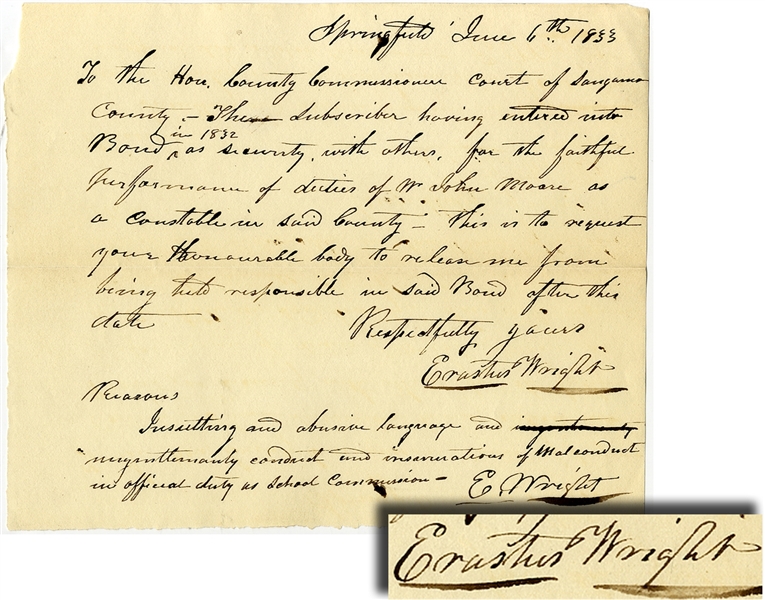 Springfield June 6th. 1833
To the Hon. County Commissioners Court of Sangamo
County – The Subscriber having entered into
in 1832
Bond, as security, with others, for the faithful
performance of duties of Wm John Moore as
a Constable in said County – This is to request
your Honourable body to release me from
being held responsible in said Bond after this
date
Respectfully yours
Erastus Wright
Reasons
Insulting and abusive language and
ungentlemanly conduct and insinuations of Malconduct
in official duty as School Commission –
E. Wright
Erastus Wright